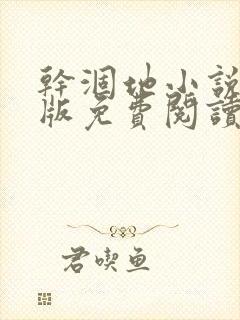 幹涸地小說
版免費閱讀
君喫魚